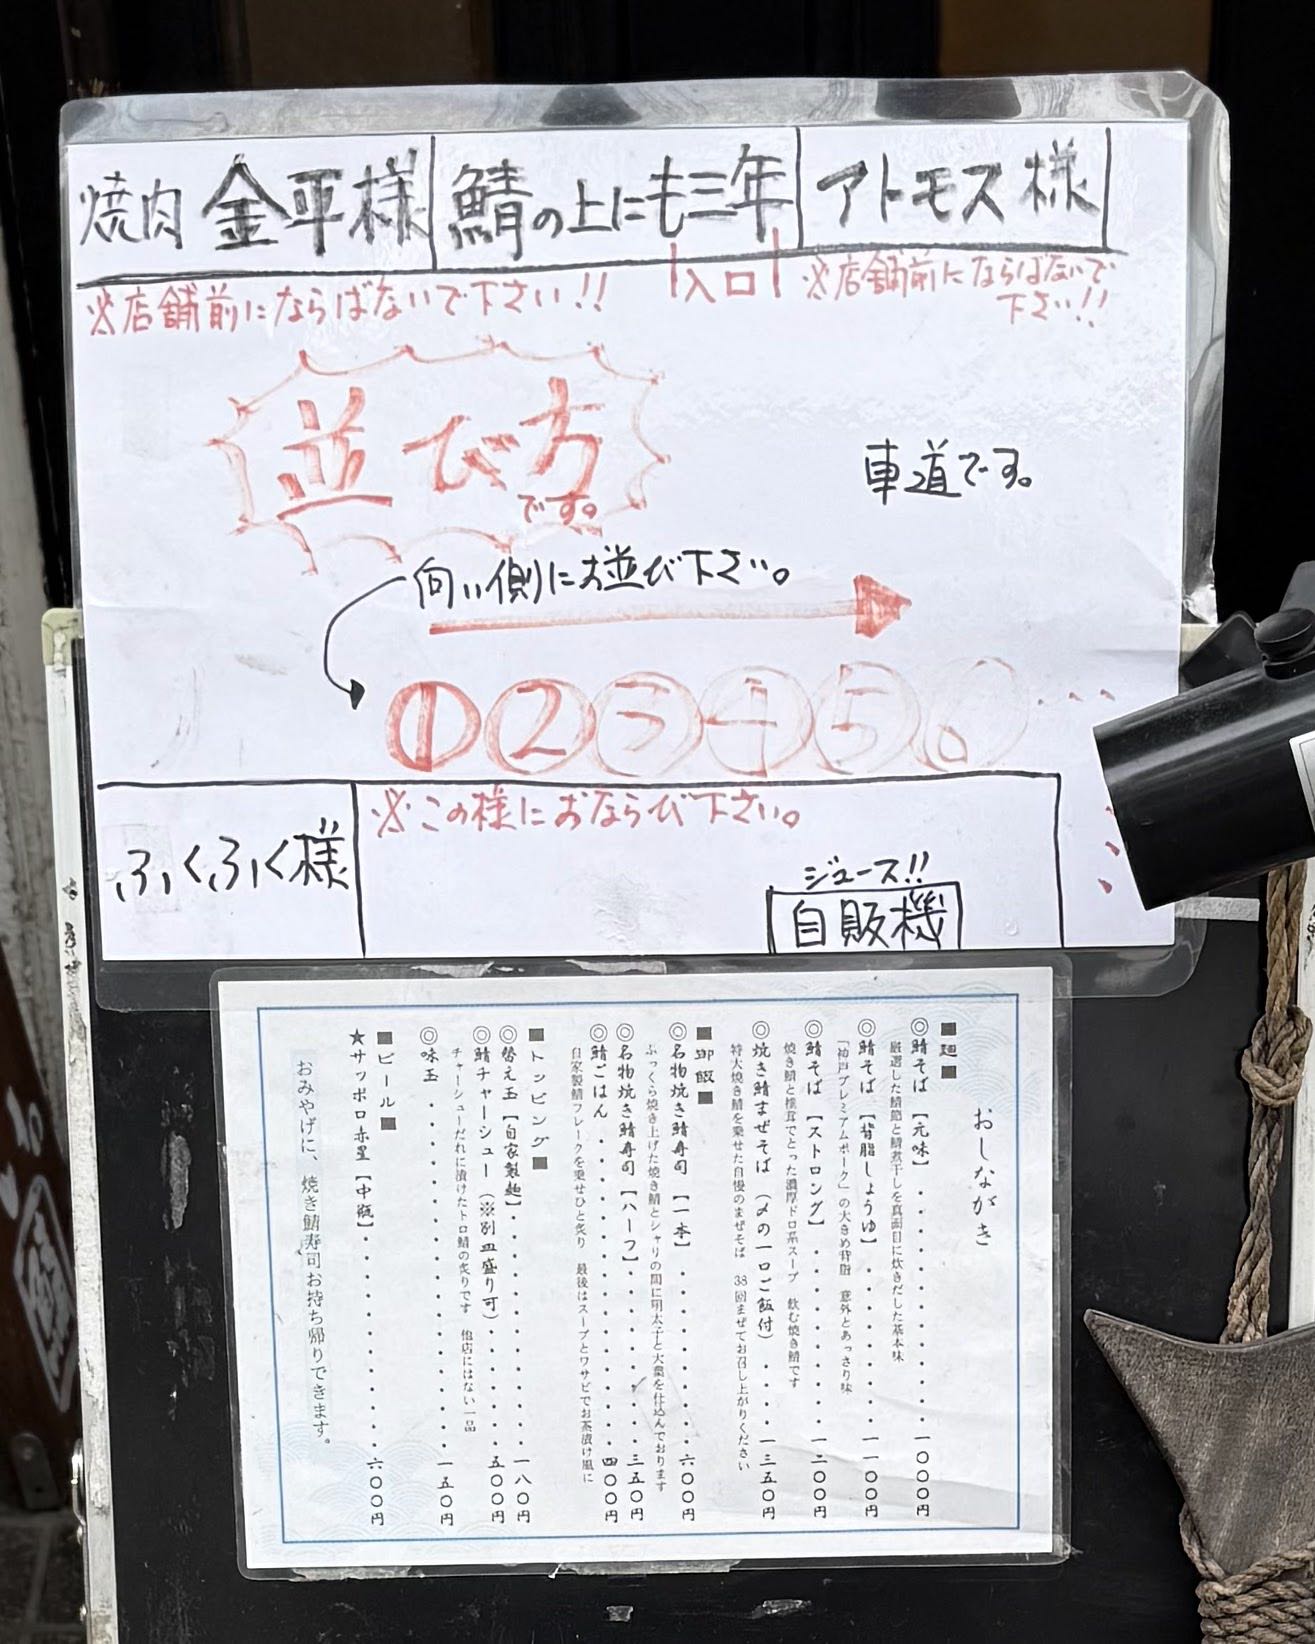 焼肉 金平様
鯖の上にも三年
アトモス様
※店舗前にならばないで下さい!!
入口
※店舗前にならばないで
下さい!!
並び方
です。
車道です。
向い側にお並び下さい。
① ② ③ ④ ⑤ ⑥ …
※この様におならび下さい。
ふくふく様
ジュース!!
自販機
おしながき
■麺■
◎鯖そば【元味】・・・・・・・・・・一〇〇〇円
厳選した鯖節と鯖煮干しを真面目に炊きだした基本味
◎鯖そば【背脂しょうゆ】・・・・・・・一一〇〇円
「神戸プレミアムポーク」の大きめ背脂 意外とあっさり味
◎鯖そば【ストロング】・・・・・・・・一二〇〇円
焼き鯖と椎茸でとった濃厚ドロ系スープ 飲む焼き鯖です
◎焼き鯖まぜそば(〆の一口ご飯付)・・・・一三五〇円
特大焼き鯖を乗せた自慢のまぜそば 38回まぜてお召し上がりください
■御飯■
◎名物焼き鯖寿司【一本】・・・・・・・六〇〇円
ふっくら焼き上げた焼き鯖とシャリの間に明太子と大葉を仕込んでおります
◎名物焼き鯖寿司【ハーフ】・・・・・・・三五〇円
◎鯖ごはん・・・・・・・・・・・・四〇〇円
自家製鯖フレークを乗せひと炙り 最後はスープとワサビでお茶漬け風に
■トッピング■
◎替え玉【自家製麺】・・・・・・・・・一八〇円
◎鯖チャーシュー(※別皿盛り可)・・・・・五〇〇円
チャーシューだれに漬けたトロ鯖の炙りです 他店にはない一品
◎味玉・・・・・・・・・・・・・・一五〇円
■ビール■
★サッポロ赤星【中瓶】・・・・・・・・六〇〇円
おみやげに、焼き鯖寿司お持ち帰りできます。